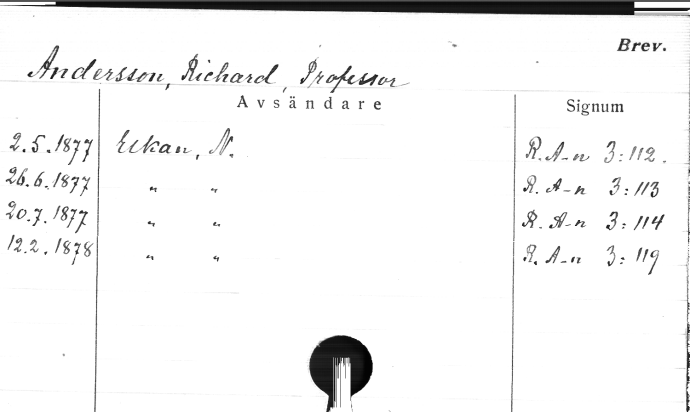 Brev.
Andersson, Richard, Professor
Avsändare Signum
2.5.1877 Elkan, N. R. A-n 3:112.
26.6.1877 " " R. A-n 3:113
20.7.1877 " " R. A-n 3:114
12.2.1878 " " R. A-n 3:119